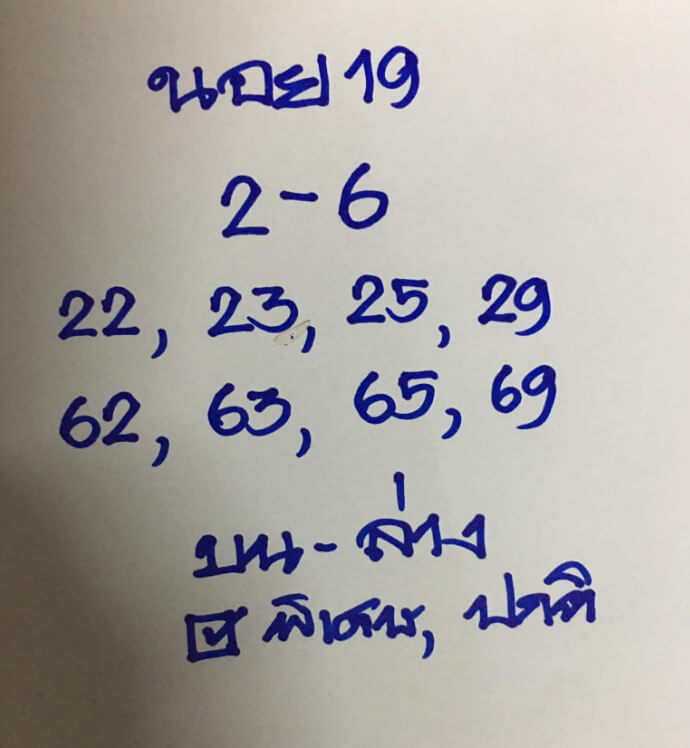 นอย 19
2-6
22, 23, 25, 29
62, 63, 65, 69
บน - ล่าง
พิเศษ, ปกติ